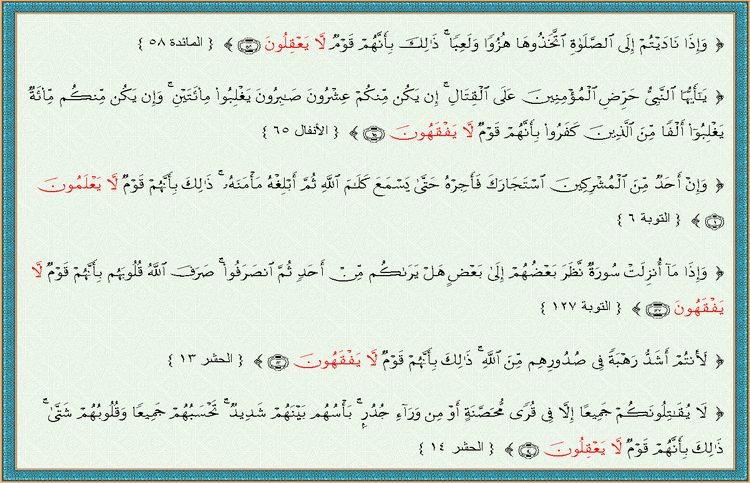 ﴿ وَإِذَا نَادَيْتُمْ إِلَى ٱلصَّلَوٰةِ ٱتَّخَذُوهَا هُزُوًا وَلَعِبًا ۚ ذَٰلِكَ بِأَنَّهُمْ قَوْمٌ لَّا يَعْقِلُونَ ۝٥٨ ﴾ { المائدة ٥٨ }
﴿ يَـٰٓأَيُّهَا ٱلنَّبِىُّ حَرِّضِ ٱلْمُؤْمِنِينَ عَلَى ٱلْقِتَالِ ۚ إِن يَكُن مِّنكُمْ عِشْرُونَ صَـٰبِرُونَ يَغْلِبُوا۟ مِا۟ئَتَيْنِ ۚ وَإِن يَكُن مِّنكُم مِّا۟ئَةٌ
يَغْلِبُوٓا۟ أَلْفًا مِّنَ ٱلَّذِينَ كَفَرُوا۟ بِأَنَّهُمْ قَوْمٌ لَّا يَفْقَهُونَ ۝٦٥ ﴾ { الأنفال ٦٥ }
﴿ وَإِنْ أَحَدٌ مِّنَ ٱلْمُشْرِكِينَ ٱسْتَجَارَكَ فَأَجِرْهُ حَتَّىٰ يَسْمَعَ كَلَـٰمَ ٱللَّهِ ثُمَّ أَبْلِغْهُ مَأْمَنَهُۥ ۚ ذَٰلِكَ بِأَنَّهُمْ قَوْمٌ لَّا يَعْلَمُونَ
۝٦ ﴾ { التوبة ٦ }
﴿ وَإِذَا مَآ أُنزِلَتْ سُورَةٌ نَّظَرَ بَعْضُهُمْ إِلَىٰ بَعْضٍ هَلْ يَرَىٰكُم مِّنْ أَحَدٍ ثُمَّ ٱنصَرَفُوا۟ ۚ صَرَفَ ٱللَّهُ قُلُوبَهُم بِأَنَّهُمْ قَوْمٌ لَّا
يَفْقَهُونَ ۝١٢٧ ﴾ { التوبة ١٢٧ }
﴿ لَأَنتُمْ أَشَدُّ رَهْبَةً فِى صُدُورِهِم مِّنَ ٱللَّهِ ۚ ذَٰلِكَ بِأَنَّهُمْ قَوْمٌ لَّا يَفْقَهُونَ ۝١٣ ﴾ { الحشر ١٣ }
﴿ لَا يُقَـٰتِلُونَكُمْ جَمِيعًا إِلَّا فِى قُرًى مُّحَصَّنَةٍ أَوْ مِن وَرَآءِ جُدُرٍۭ ۚ بَأْسُهُم بَيْنَهُمْ شَدِيدٌ ۚ تَحْسَبُهُمْ جَمِيعًا وَقُلُوبُهُمْ شَتَّىٰ ۚ
ذَٰلِكَ بِأَنَّهُمْ قَوْمٌ لَّا يَعْقِلُونَ ۝١٤ ﴾ { الحشر ١٤ }